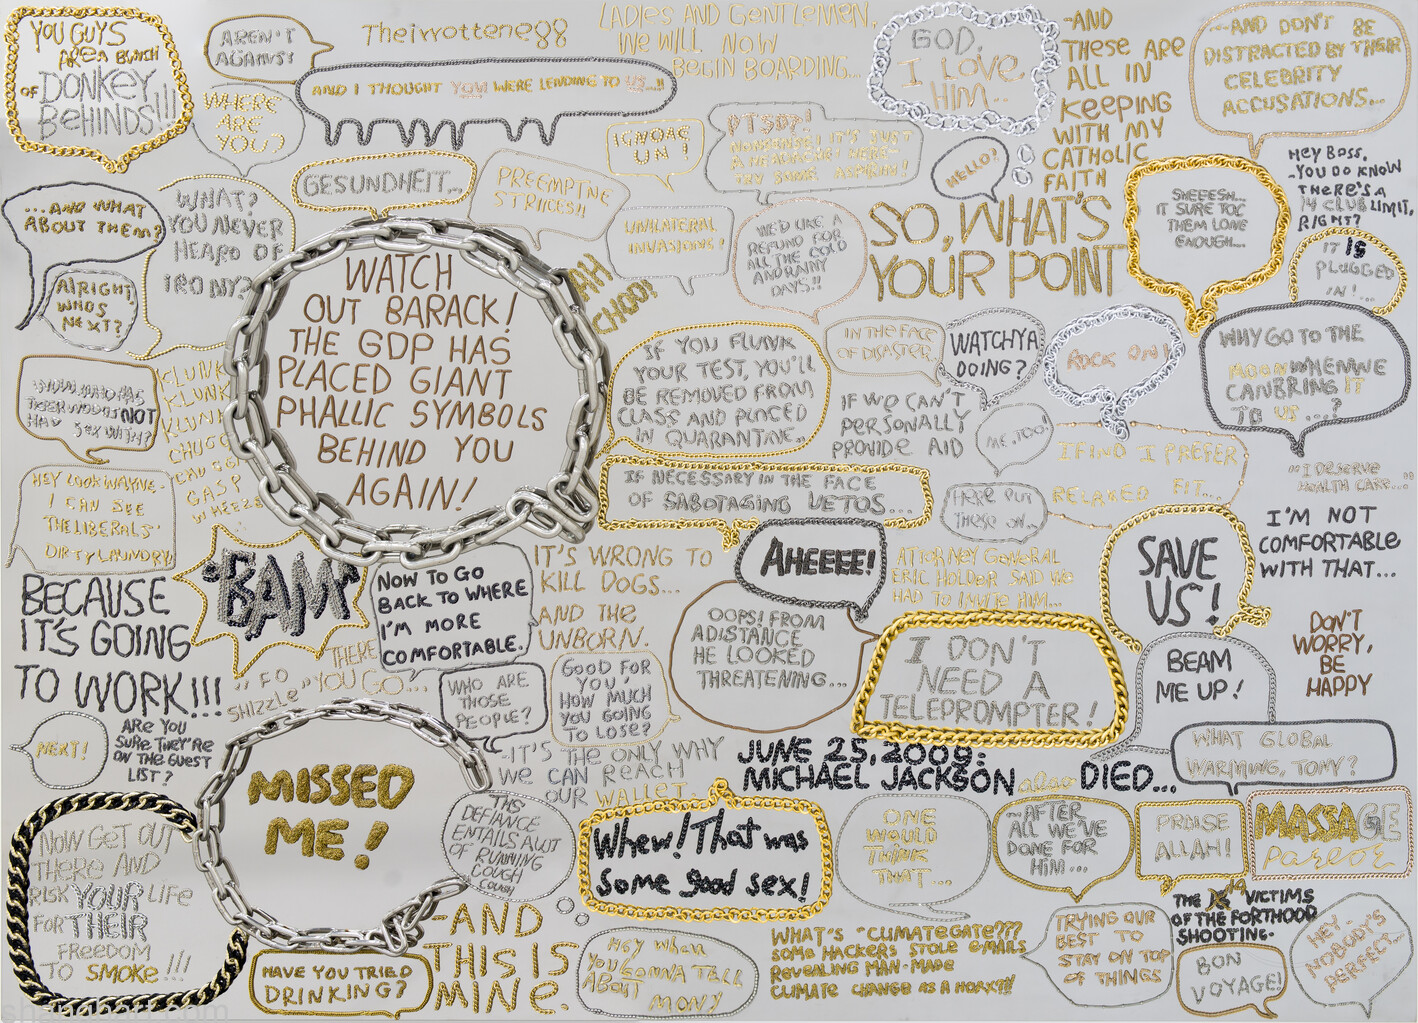 YOU GUYS
ARE A BUNCH
OF DONKEY
BEHINDS!!!
AREN'T
AGAINST?
Theirrottenegg
LADIES AND GENTLEMEN,
WE WILL NOW
BEGIN BOARDING...
GOD,
I LOVE
HIM...
-AND
THESE ARE
ALL IN
KEEPING
WITH MY
CATHOLIC
FAITH
...AND DON'T BE
DISTRACTED BY THEIR
CELEBRITY
ACCUSATIONS...
WHERE
ARE
YOU?
AND I THOUGHT YOU WERE LENDING TO US...!!
IGNORE
UN!
PTSD?!
NONSENSE! IT'S JUST
A HEADACHE! HERE,
TRY SOME ASPIRIN!
HELLO?
HEY BOSS,
-YOU DO KNOW
THERE'S A
14 CLUB LIMIT,
RIGHT?
...AND WHAT
ABOUT THEM?
WHAT?
YOU NEVER
HEARD OF
IRONY?
GESUNDHEIT...
PREEMPTIVE
STRIKES!!
UNILATERAL
INVASIONS!
WE'D LIKE A
REFUND FOR
ALL THE COLD
AND RAINY
DAYS!!
SO, WHAT'S
YOUR POINT
SHEEESH...
IT SURE TOOK
THEM LONG
ENOUGH...
IT IS
PLUGGED
IN!...
ALRIGHT,
WHO'S
NEXT?
WATCH
OUT BARACK!
THE GDP HAS
PLACED GIANT
PHALLIC SYMBOLS
BEHIND YOU
AGAIN!
AH
CHOO!
IF YOU FLUNK
YOUR TEST, YOU'LL
BE REMOVED FROM
CLASS AND PLACED
IN QUARANTINE...
IN THE FACE
OF DISASTER...
WATCHYA
DOING?
ROCK ON!
WHY GO TO THE
MOON WHEN WE
CAN BRING IT
TO US...?
TIGER WOODS NOT
HAVE SEX WITH?
KLUNK
KLUNK
KLUNK
CHUGG
CHUGG
GASP
WHEEZE
IF WE CAN'T
PERSONALLY
PROVIDE AID
ME, TOO!
I FIND I PREFER
RELAXED FIT...
"I DESERVE
HEALTH CARE..."
HEY LOOK WAYNE-
I CAN SEE
THE LIBERALS'
DIRTY LAUNDRY
IF NECESSARY IN THE FACE
OF SABOTAGING VETOS...
HERE PUT
THESE ON...
I'M NOT
COMFORTABLE
WITH THAT...
BAM
BECAUSE
IT'S GOING
TO WORK!!!
NOW TO GO
BACK TO WHERE
I'M MORE
COMFORTABLE.
IT'S WRONG TO
KILL DOGS...
AND THE
UNBORN.
AHEEEE!
ATTORNEY GENERAL
ERIC HOLDER SAID WE
HAD TO INVITE HIM...
SAVE
US!
OOPS! FROM
A DISTANCE
HE LOOKED
THREATENING...
I DON'T
NEED A
TELEPROMPTER!
DON'T
WORRY,
BE
HAPPY
"FO
SHIZZLE"
THERE
YOU GO...
WHO ARE
THOSE
PEOPLE?
GOOD FOR
YOU!
HOW MUCH
YOU GOING
TO LOSE?
BEAM
ME UP!
NEXT!
ARE YOU
SURE THEY'RE
ON THE GUEST
LIST?
-IT'S THE ONLY WAY
WE CAN REACH
OUR WALLET.
JUNE 25, 2009:
MICHAEL JACKSON also DIED...
WHAT GLOBAL
WARMING, TOMY?
MISSED
ME!
THIS
DEFIANCE
ENTAILS A LOT
OF RUNNING
COUGH
COUGH
Whew! That was
some good sex!
ONE
WOULD
THINK
THAT...
-AFTER
ALL WE'VE
DONE FOR
HIM...
PRAISE
ALLAH!
MASSAGE
Parlor
NOW GET OUT
THERE AND
RISK YOUR LIFE
FOR THEIR
FREEDOM
TO SMOKE!!!
THE 14 VICTIMS
OF THE FORTHOOD
SHOOTING.
HAVE YOU TRIED
DRINKING?
-AND
THIS IS
MINE.
HEY WHEN
YOU GONNA TELL
ABOUT MOM?
WHAT'S "CLIMATEGATE???
SOME HACKERS STOLE EMAILS
REVEALING MAN-MADE
CLIMATE CHANGE AS A HOAX!!!
TRYING OUR
BEST TO
STAY ON TOP
OF THINGS
BON
VOYAGE!
HEY-
NOBODY'S
PERFECT...